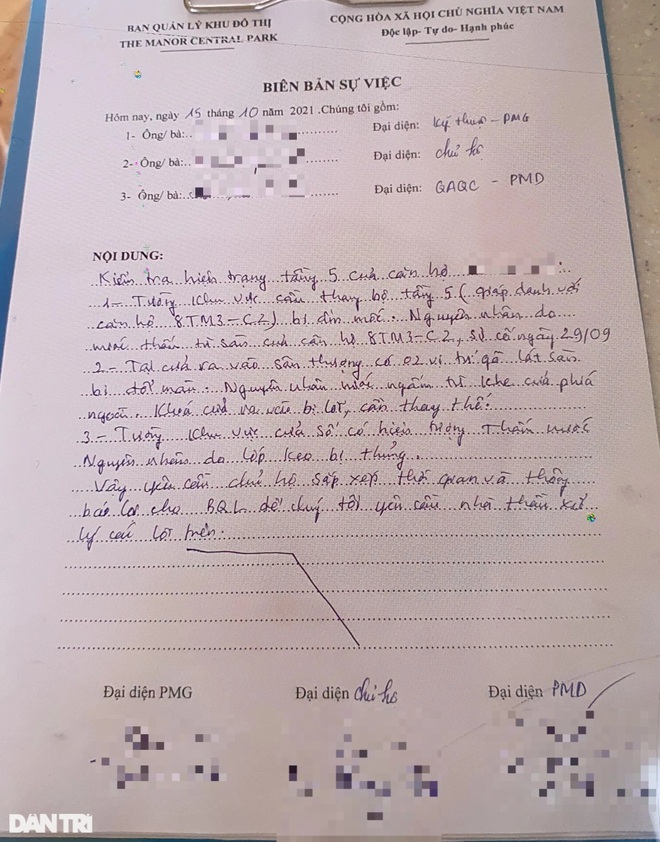 BAN QUẢN LÝ KHU ĐÔ THỊ
THE MANOR CENTRAL PARK
CỘNG HÒA XÃ HỘI CHỦ NGHĨA VIỆT NAM
Độc lập- Tự do- Hạnh phúc
BIÊN BẢN SỰ VIỆC
Hôm nay, ngày 15 tháng 10 năm 2021 .Chúng tôi gồm:
1- Ông/ bà:.. Đại diện: Kỹ thuật - PMG
2- Ông/ bà:.. Đại diện: chủ hộ
3- Ông/ bà:.. Đại diện: QAQC - PMD
NỘI DUNG:
Kiểm tra hiện trạng tầng 5 của căn hộ
1 - Tường khu vực cầu thang bộ tầng 5 ( giáp danh với
căn hộ 8TM3-C.2) bị ẩm mốc. Nguyên nhân do
nước thấm từ sàn của căn hộ 8TM3-C.2, sự cố ngày 29/09
2 - Tại cửa ra vào sân thượng có 02 vị trí gỗ lát sàn
bị đổi màu. Nguyên nhân nước ngấm từ khe cửa phía
ngoài. Khoá cửa ra vào bị lỗi, cần thay thế.
3 - Tường khu vực cửa sổ có hiện tượng thấm nước
Nguyên nhân do lớp keo bị thủng.
Vậy yêu cầu chủ hộ sắp xếp thời gian và thông
báo lại cho BQL để chúng tôi yêu cầu nhà thầu xử
lý các lỗi trên.
Đại diện PMG
Đại diện chủ hộ
Đại diện PMD
DÂN TRÍ